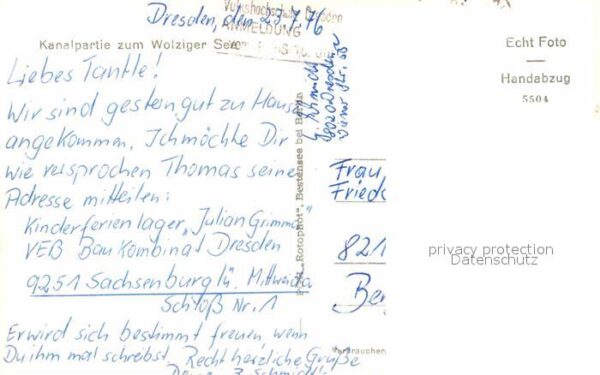 Dresden, den 23.7.76
Volkshochschule Dresden
ANMELDUNG
Kanalpartie zum Wolziger See
Liebes Tantle!
Wir sind gestern gut zu Hause
angekommen. Ich möchte Dir
wie versprochen Thomas seine
Adresse mitteilen:
Kinderferienlager "Julian Grimmau"
VEB BauKombinat Dresden
9251 Sachsenburg ü. Mittweida
Schloß Nr. 1
Er wird sich bestimmt freuen, wenn
Du ihm mal schreibst. Recht herzliche Grüße
Schmidt
8020 Dresden
"Rotophot", Bestensee bei Berlin
Echt Foto
Handabzug
5504
Frau
Frieda
821
privacy protection
Datenschutz